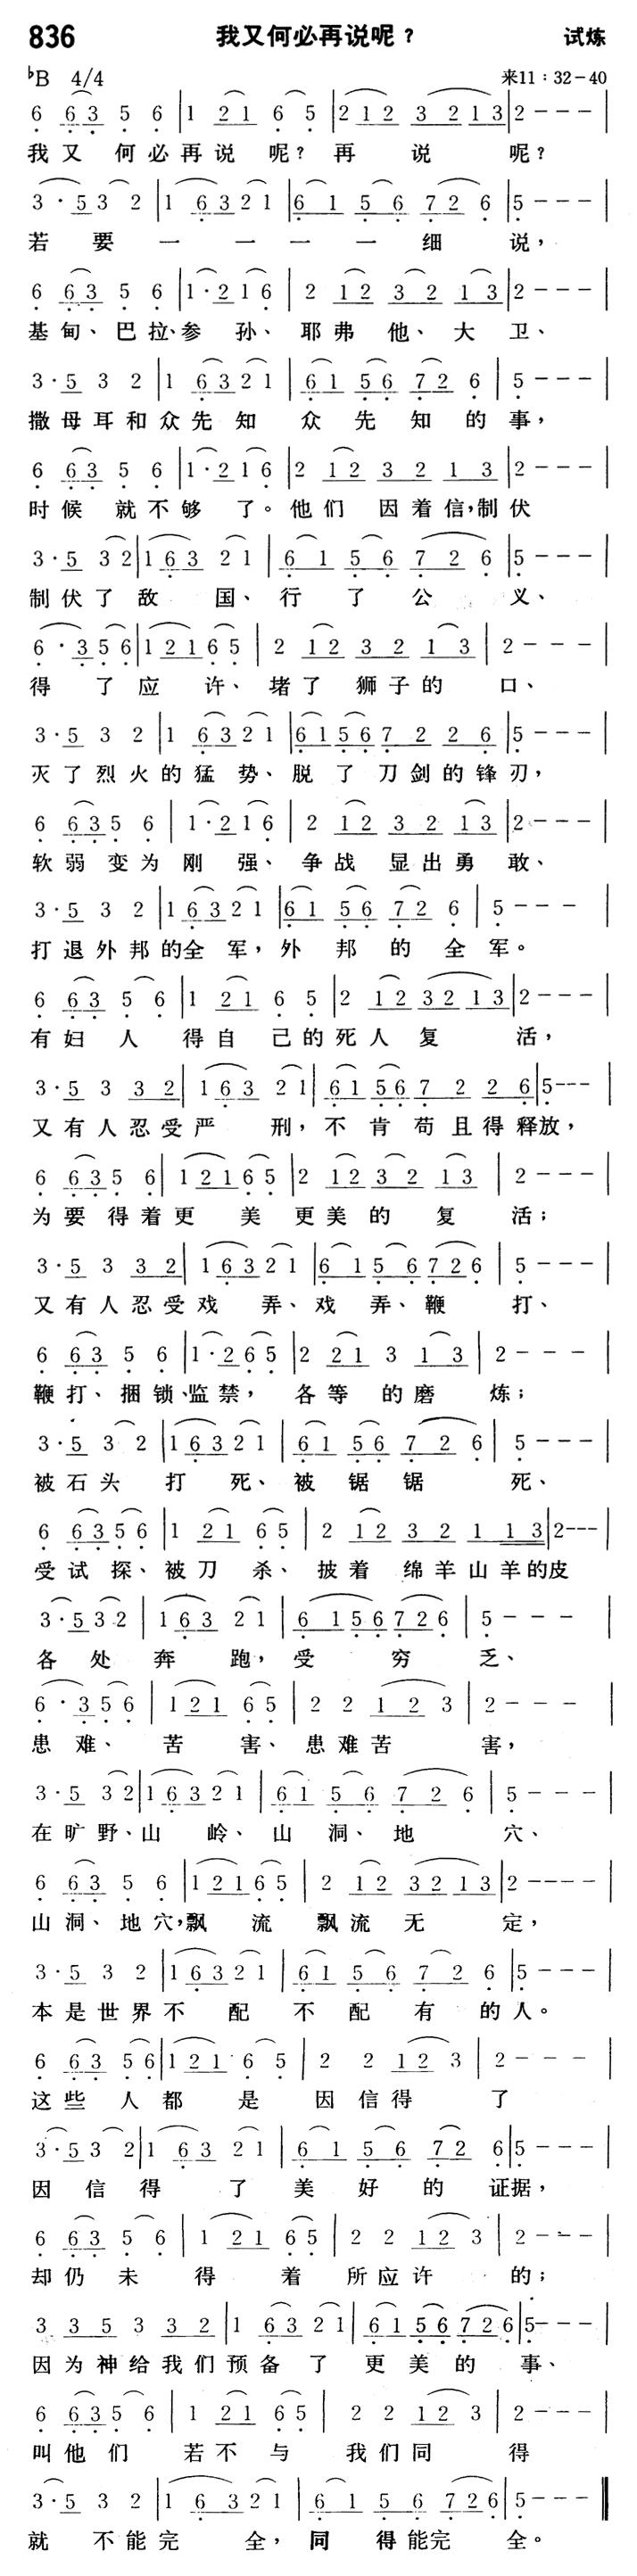 836 我又何必再说呢？ 试炼
♭B 4/4 来11：32－40
6 6 3 5 6 | 1 2 1 6 5 | 2 1 2 3 2 1 3 | 2 - - - |
我又何必再说呢？再说呢？
3 · 5 3 2 | 1 6 3 2 1 | 6 1 5 6 7 2 6 | 5 - - - |
若要一一一一细说，
6 6 3 5 6 | 1 · 2 1 6 | 2 1 2 3 2 1 3 | 2 - - - |
基甸、巴拉、参孙、耶弗他、大卫、
3 · 5 3 2 | 1 6 3 2 1 | 6 1 5 6 7 2 6 | 5 - - - |
撒母耳和众先知众先知的事，
6 6 3 5 6 | 1 · 2 1 6 | 2 1 2 3 2 1 3 | 2 - - - |
时候就不够了。他们因着信，制伏
3 · 5 3 2 | 1 6 3 2 1 | 6 1 5 6 7 2 6 | 5 - - - |
制伏了敌国、行了公义、
6 · 3 5 6 | 1 2 1 6 5 | 2 1 2 3 2 1 3 | 2 - - - |
得了应许、堵了狮子的口、
3 · 5 3 2 | 1 6 3 2 1 | 6 1 5 6 7 2 2 6 | 5 - - - |
灭了烈火的猛势、脱了刀剑的锋刃，
6 6 3 5 6 | 1 · 2 1 6 | 2 1 2 3 2 1 3 | 2 - - - |
软弱变为刚强、争战显出勇敢、
3 · 5 3 2 | 1 6 3 2 1 | 6 1 5 6 7 2 6 | 5 - - - |
打退外邦的全军，外邦的全军。
6 6 3 5 6 | 1 2 1 6 5 | 2 1 2 3 2 1 3 | 2 - - - |
有妇人得自己的死人复活，
3 · 5 3 3 2 | 1 6 3 2 1 | 6 1 5 6 7 2 2 6 | 5 - - - |
又有人忍受严刑，不肯苟且得释放，
6 6 3 5 6 | 1 2 1 6 5 | 2 1 2 3 2 1 3 | 2 - - - |
为要得着更美更美的复活；
3 · 5 3 3 2 | 1 6 3 2 1 | 6 1 5 6 7 2 6 | 5 - - - |
又有人忍受戏弄、戏弄、鞭打、
6 6 3 5 6 | 1 · 2 6 5 | 2 2 1 3 1 3 | 2 - - - |
鞭打、捆锁、监禁，各等的磨炼；
3 · 5 3 2 | 1 6 3 2 1 | 6 1 5 6 7 2 6 | 5 - - - |
被石头打死、被锯锯死、
6 6 3 5 6 | 1 2 1 6 5 | 2 1 2 3 2 1 1 3 | 2 - - - |
受试探、被刀杀、披着绵羊山羊的皮
3 · 5 3 2 | 1 6 3 2 1 | 6 1 5 6 7 2 6 | 5 - - - |
各处奔跑，受穷乏、
6 · 3 5 6 | 1 2 1 6 5 | 2 2 1 2 3 | 2 - - - |
患难、苦害、患难苦害，
3 · 5 3 2 | 1 6 3 2 1 | 6 1 5 6 7 2 6 | 5 - - - |
在旷野、山岭、山洞、地穴、
6 6 3 5 6 | 1 2 1 6 5 | 2 1 2 3 2 1 3 | 2 - - - - |
山洞、地穴，飘流飘流无定，
3 · 5 3 2 | 1 6 3 2 1 | 6 1 5 6 7 2 6 | 5 - - - |
本是世界不配不配有的人。
6 6 3 5 6 | 1 2 1 6 5 | 2 2 1 2 3 | 2 - - - |
这些人都是因信得了
3 · 5 3 2 | 1 6 3 2 1 | 6 1 5 6 7 2 6 | 5 - - - |
因信得了美好的证据，
6 6 3 5 6 | 1 2 1 6 5 | 2 2 1 2 3 | 2 - - - |
却仍未得着所应许的；
3 3 5 3 3 2 | 1 6 3 2 1 | 6 1 5 6 7 2 6 | 5 - - - |
因为神给我们预备了更美的事、
6 6 3 5 6 | 1 2 1 6 5 | 2 2 1 2 3 | 2 - - - |
叫他们若不与我们同得
3 · 5 3 2 | 1 6 3 2 1 | 6 1 5 6 7 2 6 | 5 - - - ‖
就不能完全，同得能完全。